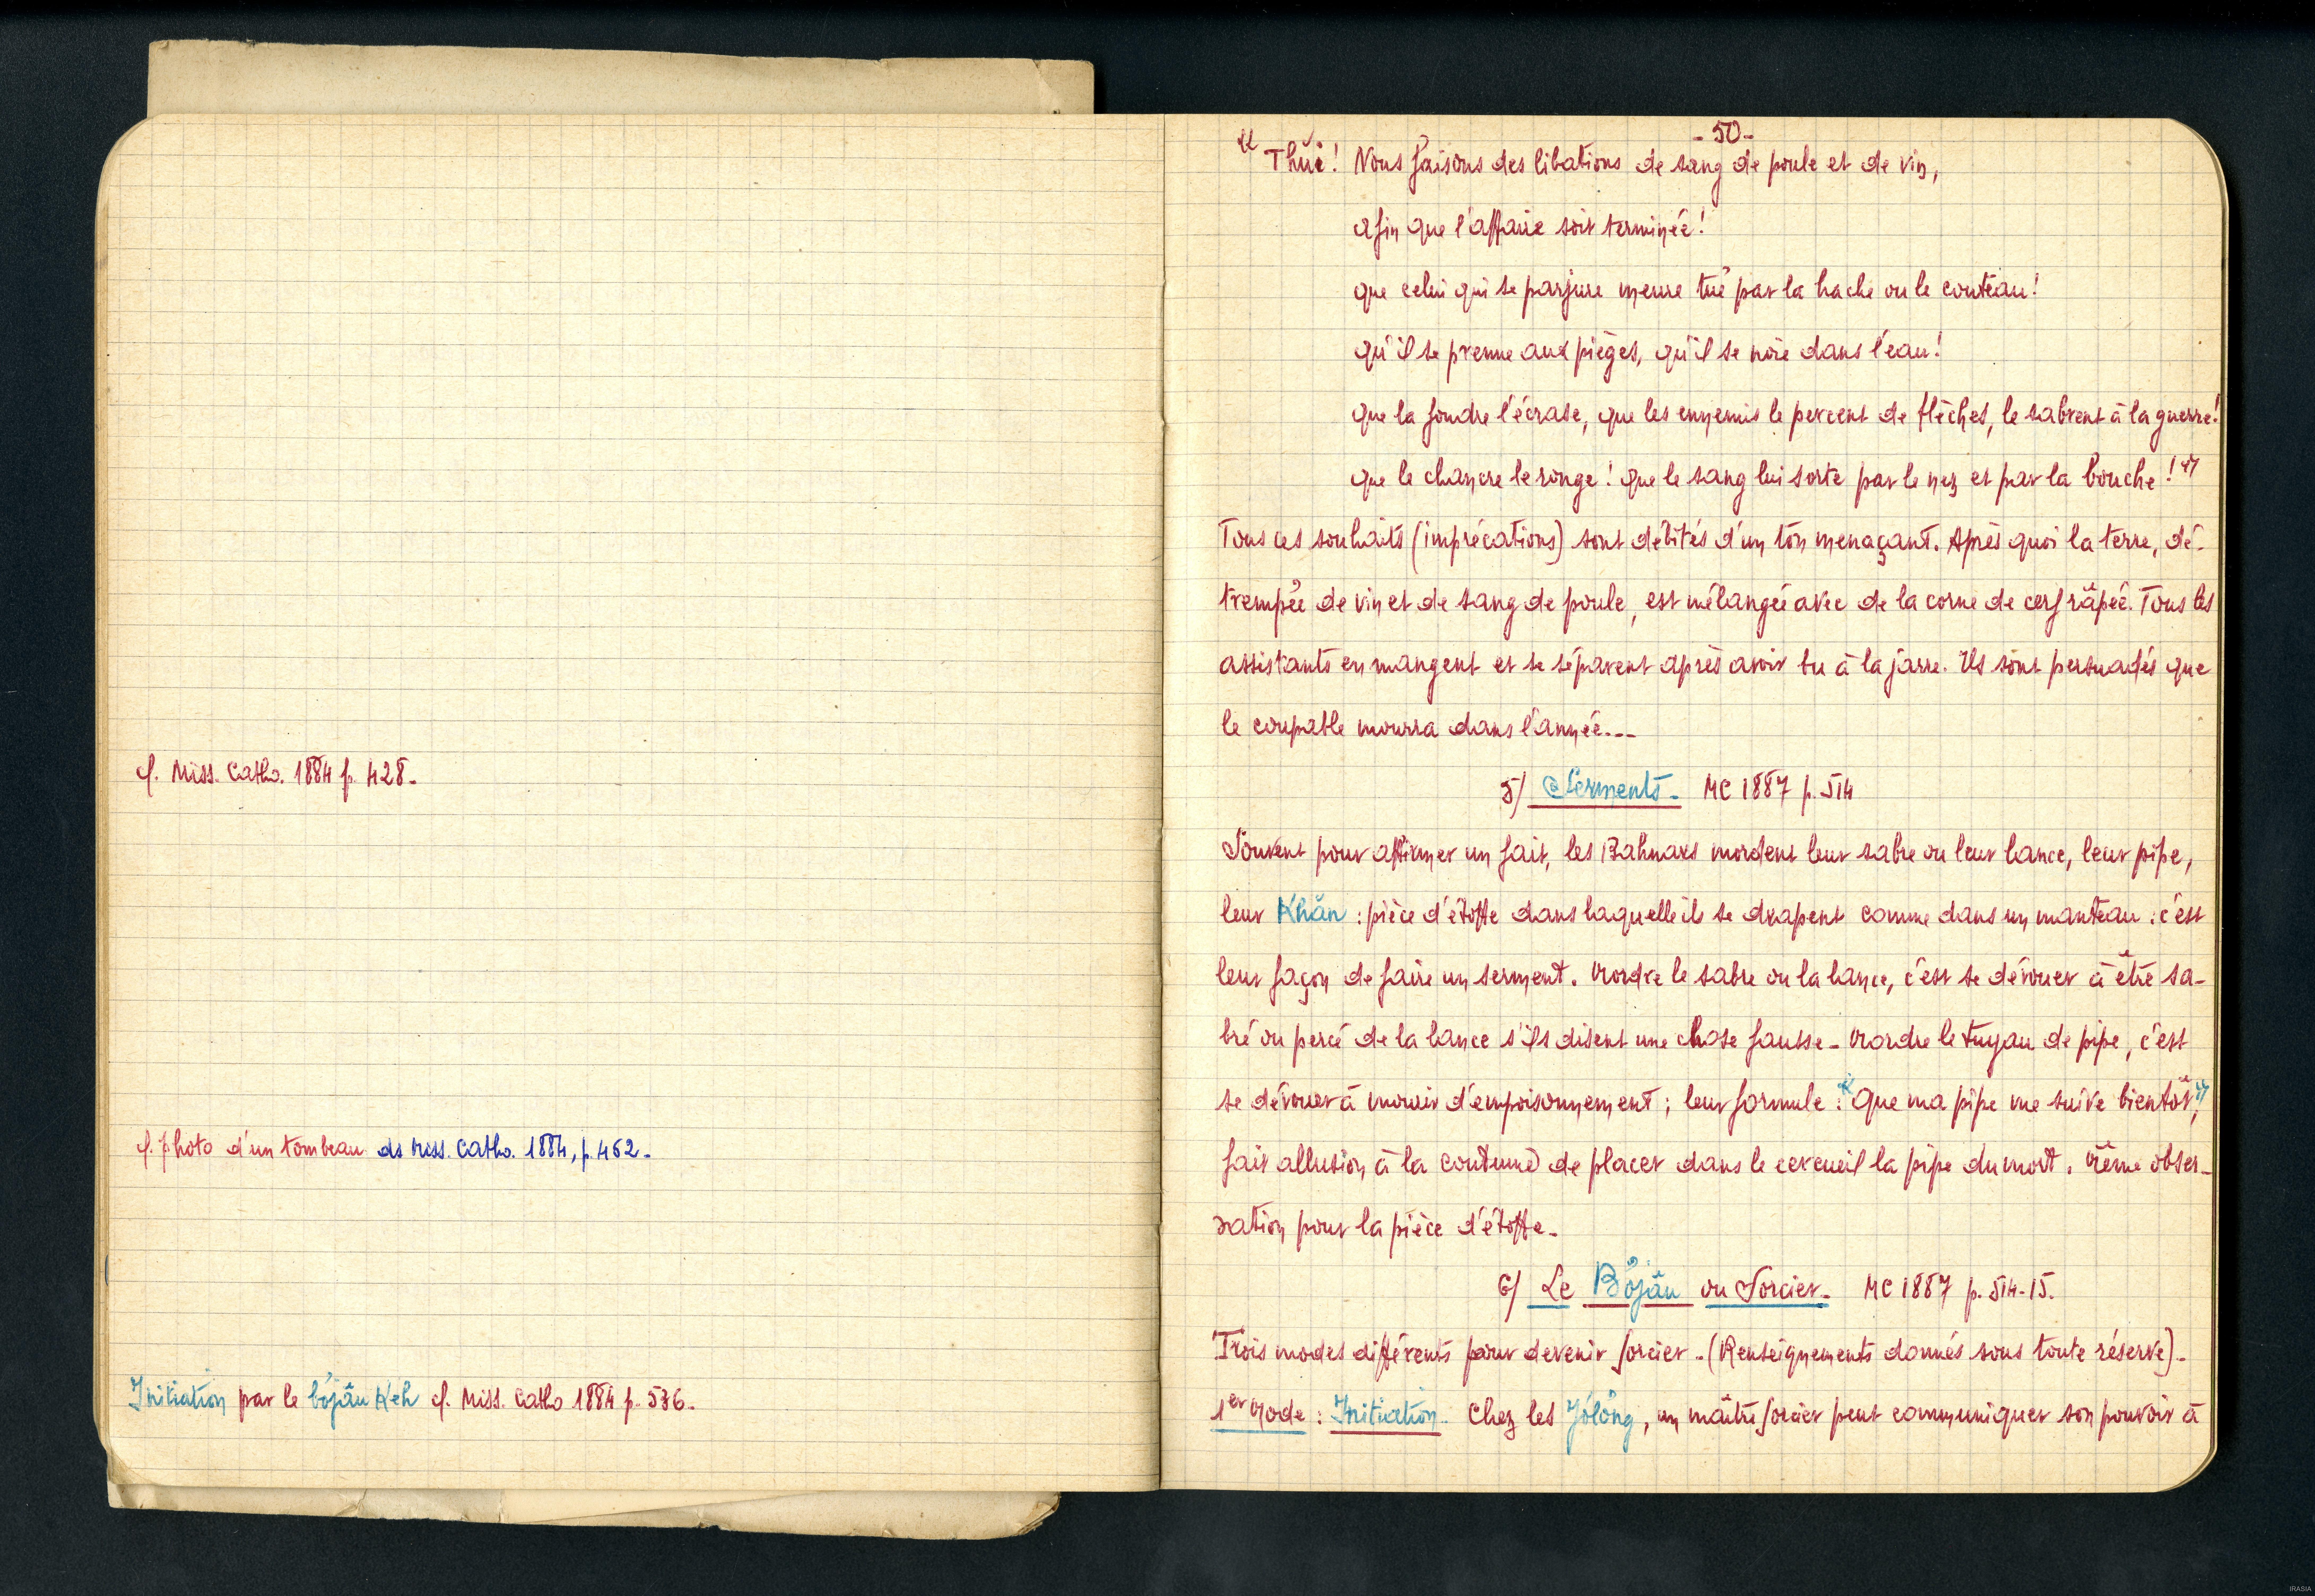 cf. Miss. Catho. 1884 p. 428.
cf. photo d'un tombeau ds Miss. Catho. 1884, p. 452.
Initiation par le bơjâu Keh cf. Miss. Catho 1884 p. 536.
- 50 -
« Thũi ! Nous faisons des libations de sang de poule et de vin,
afin que l'affaire soit terminée !
que celui qui se parjure meure tué par la hache ou le couteau !
qu'il se prenne aux pièges, qu'il se noie dans l'eau !
que la foudre l'écrase, que les ennemis le percent de flèches, le sabrent à la guerre !
que le chancre le ronge ! que le sang lui sorte par le nez et par la bouche ! »
Tous ces souhaits (imprécations) sont débités d'un ton menaçant. Après quoi la terre, dé-
trempée de vin et de sang de poule, est mélangée avec de la corne de cerf râpée. Tous les
assistants en mangent et se séparent après avoir bu à la jarre. Ils sont persuadés que
le coupable mourra dans l'année...
5/ Serments - MC 1887 p. 514
Souvent pour affirmer un fait, les Bahnars mordent leur sabre ou leur lance, leur pipe,
leur Khăn : pièce d'étoffe dans laquelle ils se drapent comme dans un manteau : c'est
leur façon de faire un serment. Mordre le sabre ou la lance, c'est se dévouer à être sa-
bré ou percé de la lance s'ils disent une chose fausse - Mordre le tuyau de pipe, c'est
se dévouer à mourir d'empoisonnement ; leur formule : « Que ma pipe me suive bientôt »,
fait allusion à la coutume de placer dans le cercueil la pipe du mort. Même obser-
vation pour la pièce d'étoffe -
6/ Le Bơjâu ou Sorcier - MC 1887 p. 514-15.
Trois modes différents pour devenir sorcier - (Renseignements donnés sous toute réserve) -
1er Mode : Initiation - Chez les Jơlơng, un maître sorcier peut communiquer son pouvoir à
IRASIA